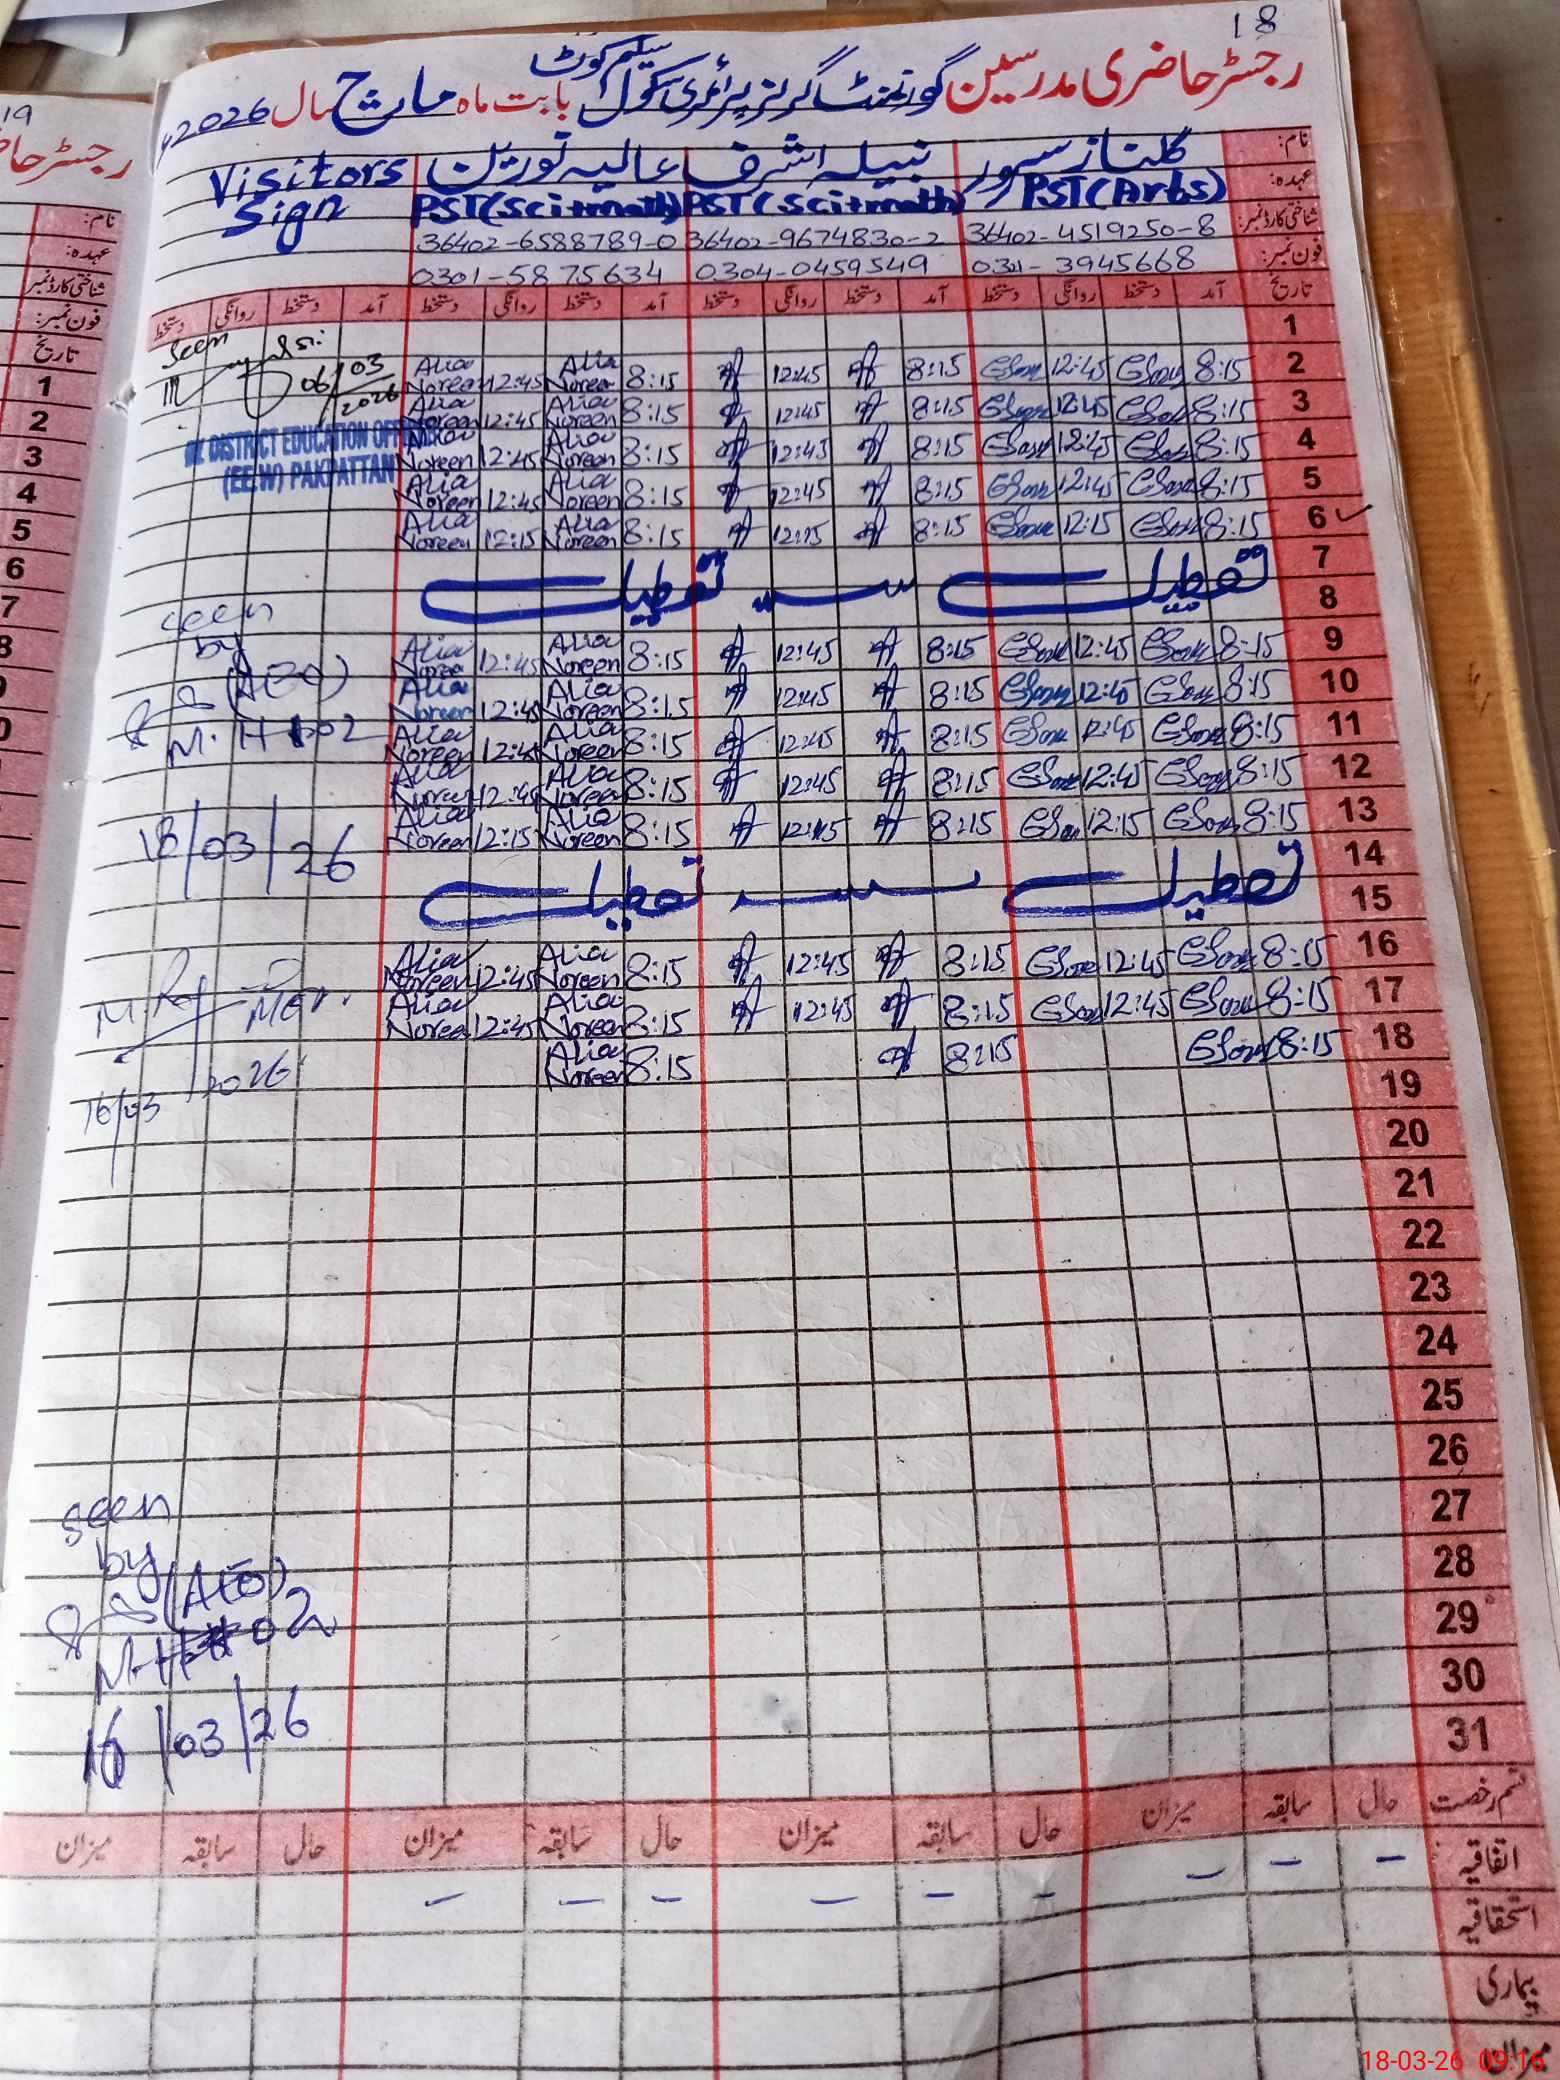 18
رجسٹر حاضری مدرسین گورنمنٹ گرلز پرائمری سکول سلیم کوٹ بابت ماہ مارچ سال 2026ء
نام: گلناز سرور نبیلہ اشرف عالیہ نورین Visitors Sign
عہدہ: PST(Arts) PST(Sci+math) PST(Sci+math)
شناختی کارڈ نمبر: 36402-4519250-8 36402-9674830-2 36402-6588789-0
فون نمبر: 3945668 0304-0459549 0301-5875634
تاریخ آمد دستخط روانگی دستخط آمد دستخط روانگی دستخط آمد دستخط روانگی دستخط آمد دستخط روانگی دستخط
1
2 8:15 12:45 8:15 12:45 8:15 Alia Noreen 12:45 Alia Noreen
3 8:15 12:45 8:15 12:45 8:15 Alia Noreen 12:45 Alia Noreen
4 8:15 12:45 8:15 12:45 8:15 Alia Noreen 12:45 Alia Noreen
5 8:15 12:45 8:15 12:45 8:15 Alia Noreen 12:45 Alia Noreen
6 8:15 12:15 8:15 12:15 8:15 Alia Noreen 12:15 Alia Noreen
7
تعطیل تعطیل
8
9 8:15 12:45 8:15 12:45 8:15 Alia Noreen 12:45 Alia Noreen
10 8:15 12:45 8:15 12:45 8:15 Alia Noreen 12:45 Alia Noreen
11 8:15 12:45 8:15 12:45 8:15 Alia Noreen 12:45 Alia Noreen
12 8:15 12:45 8:15 12:45 8:15 Alia Noreen 12:45 Alia Noreen
13 8:15 12:15 8:15 8:15 Alia Noreen 12:15 Alia Noreen
14
تعطیل تعطیل
15
16 8:15 12:45 8:15 12:45 8:15 Alia Noreen 12:45 Alia Noreen
17 8:15 12:45 8:15 12:45 8:15 Alia Noreen 12:45 Alia Noreen
18 8:15 8:15 8:15 Alia Noreen
19
20
21
22
23
24
25
26
27
28
29
30
31
Seen
06/03/2026
DISTRICT EDUCATION OFFICER
(EE.W) PAKPATTAN
seen
by
(AEO)
M.
02
18/03/26
16/03/2026
seen
by
(AEO)
M.
02
16/03/26
قسم رخصت حال سابقہ میزان حال سابقہ میزان حال سابقہ میزان حال سابقہ میزان
اتفاقیہ - - - - - - - - -
استحقاقیہ
بیماری
میزان
19
رجسٹر حا
نام:
عہدہ:
شناختی کارڈ نمبر
فون نمبر:
تاریخ
1
2
3
4
5
6
7
8
18-03-26 09:16